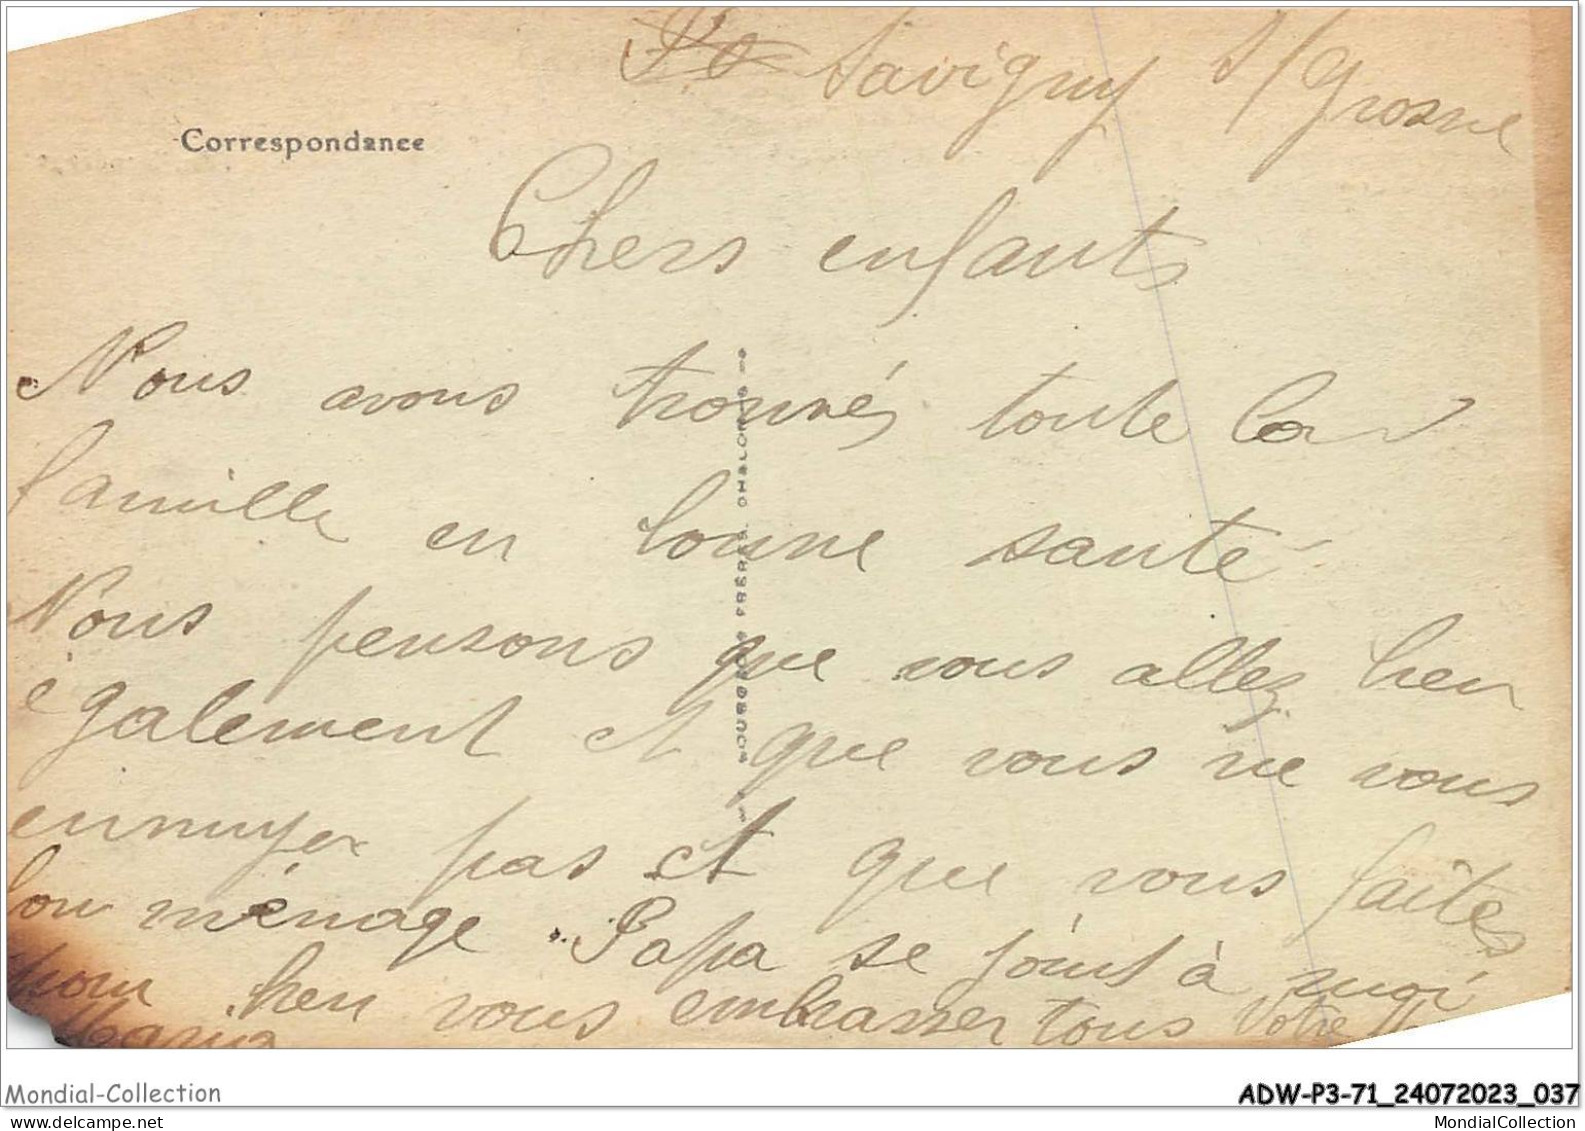 Savigny s/Grosne
Correspondance
Chers enfants
Nous avons trouvés toute la
famille en bonne santé
Nous pensons que vous allez bien
également et que vous ne vous
ennuyer pas et que vous faites
bon ménage. Papa se joint à moi
pour bien vous embrasser tous Votre
Maria
FRÈRES, CHALON
Mondial-Collection
ADW-P3-71_24072023_037
mondialcollection.com
MondialCollection